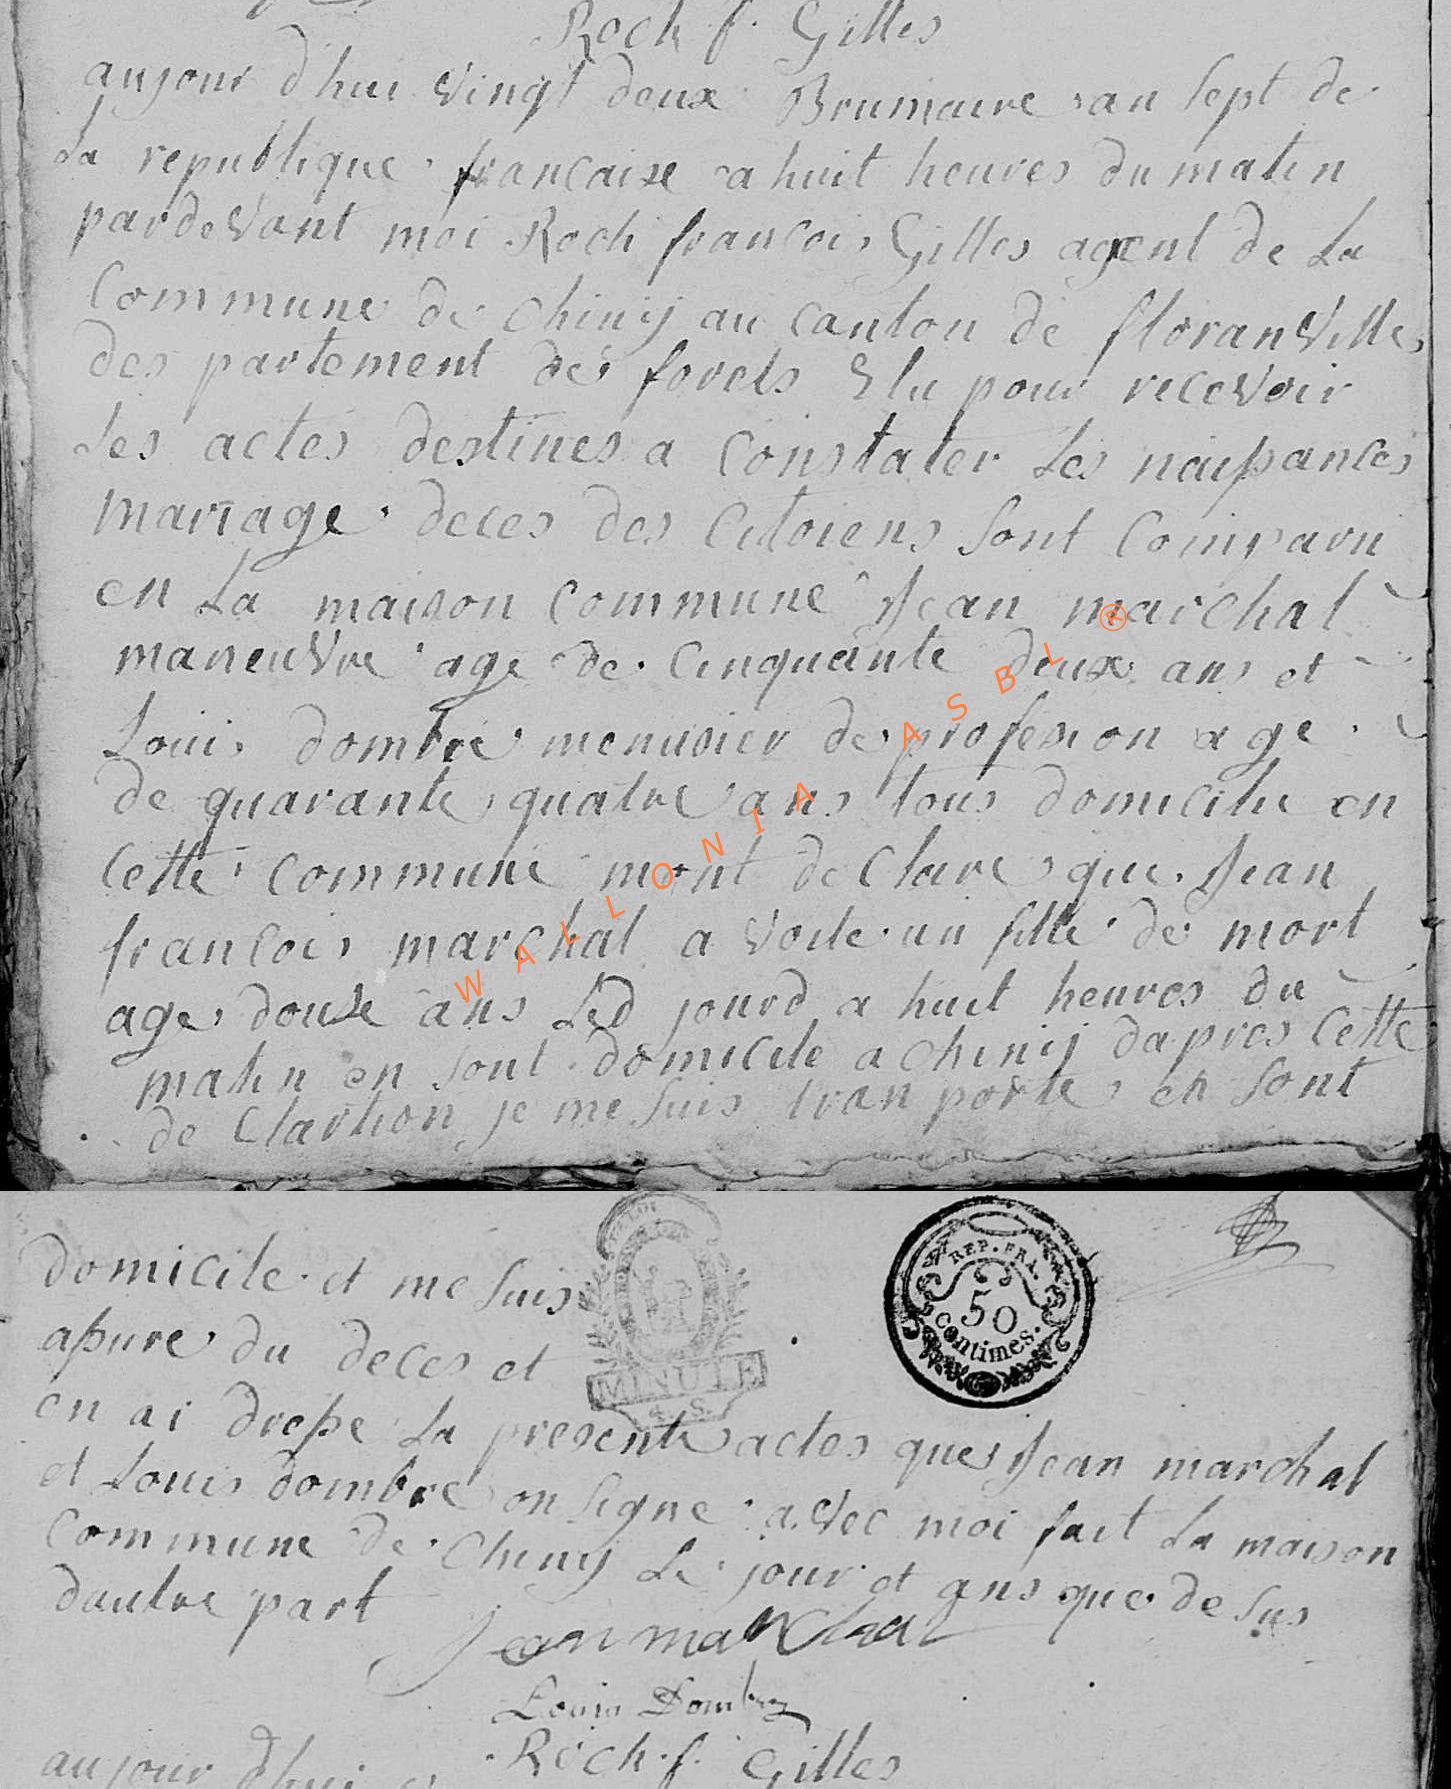 Roch f. Gilles
aujour d'hui vingt deux Brumaire an sept de
La republique francaise a huit heures du matin
pardevant moi Roch francois Gilles agent de La
Commune de chiny au canton de floranville
des partement des forets Elu pour recevoir
Les actes destines a Constater Les naissances
mariage deces des Citoiens sont Comparu
en La maison commune Jean marchal
maneuvre age de cinquante deux ans et
Louis dombre menusier de profesion age
de quarante quatre ans tous domicilie en
cette commune mont de Clare que Jean
francois marchal a
age douse ans Led jourd a huit heures du
matin en sont domicile a chiny dapres cette
de Clartion je me suis tranporte en sont
domicile et me suis
assure du deces et
en ai dresse La presente actes que Jean marchal
et Louis dombre on signe avec moi fait La maison
commune de Chiny Le jour et ans que de sus
dautre part
Jean marchal
Louis Dombre
Roch f. Gilles
aujour d'hui
REP. FRA.
50
centimes.
MINUTE
4. S.
WALLONIA ASBL ®